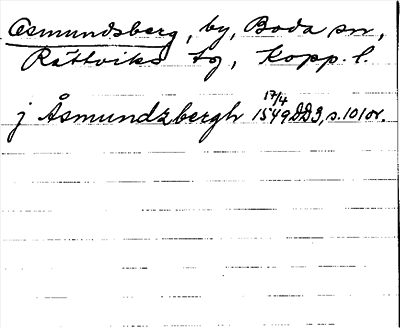 Osmundsberg, by, Boda sn,
Rättviks tg, Kopp. l.
j Åsmundzbergh 17/4 1549 DD 3, s. 101 or.